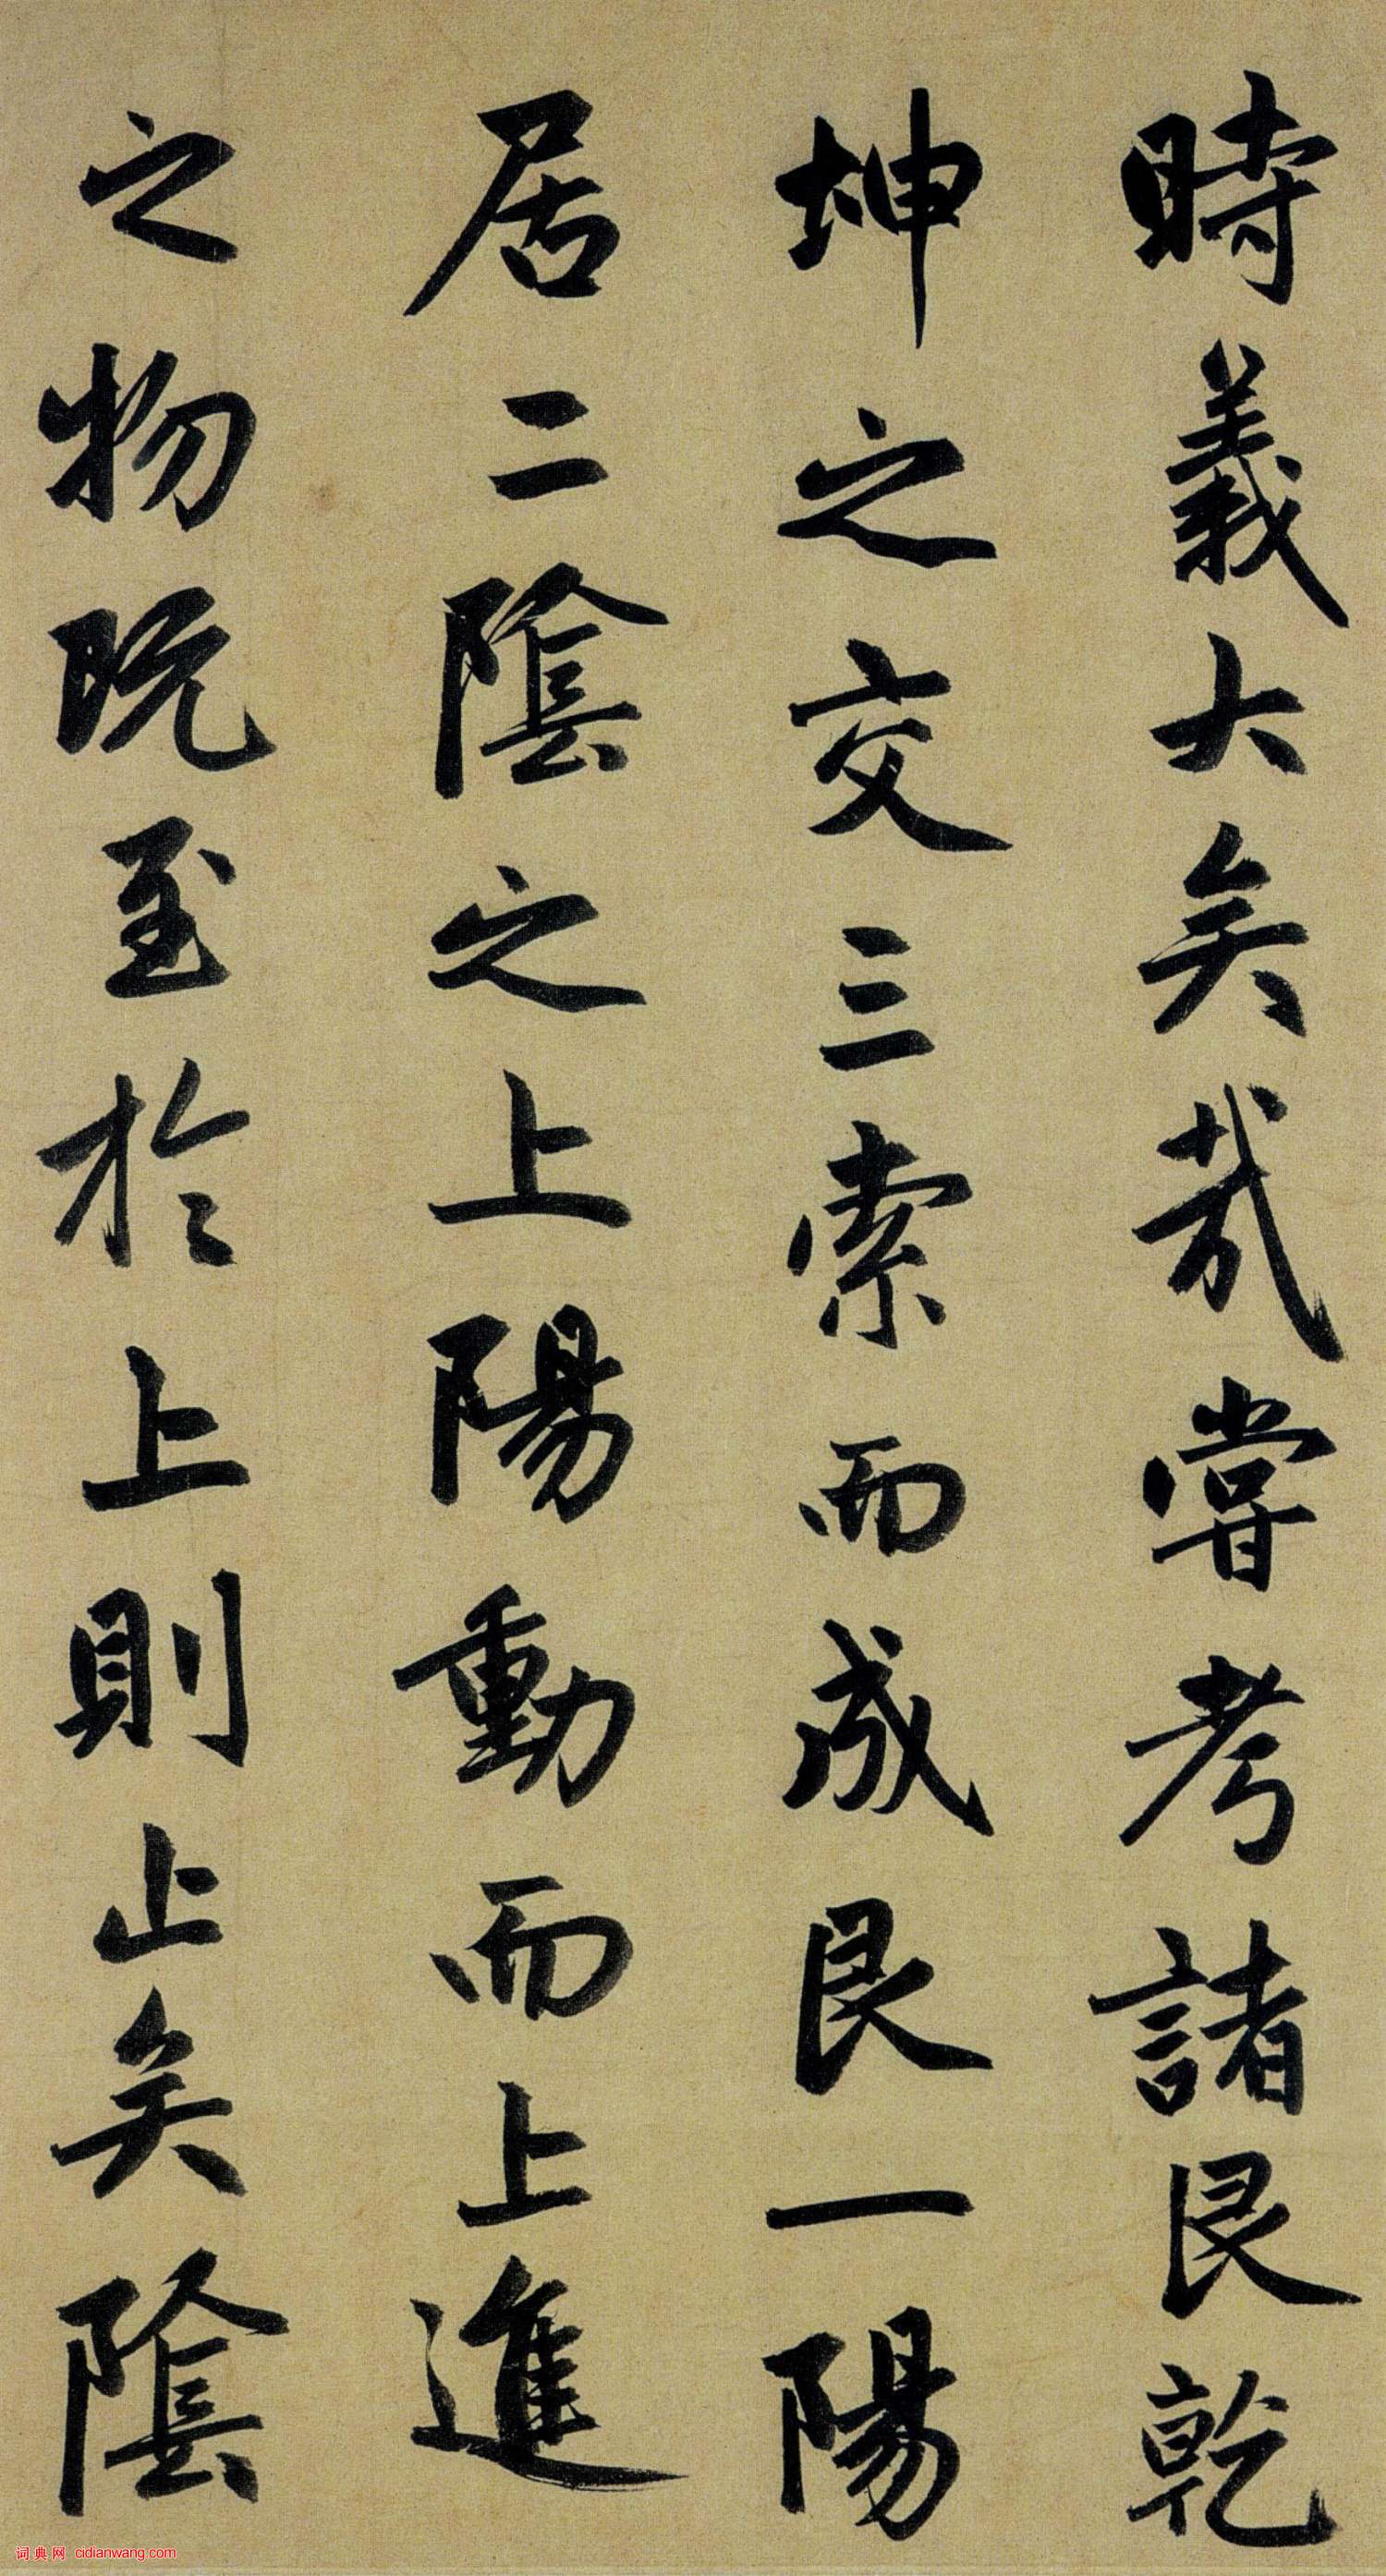 時義大矣哉嘗考諸艮乾
坤之交三索而成艮一陽
居二陰之上陽動而上進
之物既至於上則止矣陰
词典网 cidianwang.com